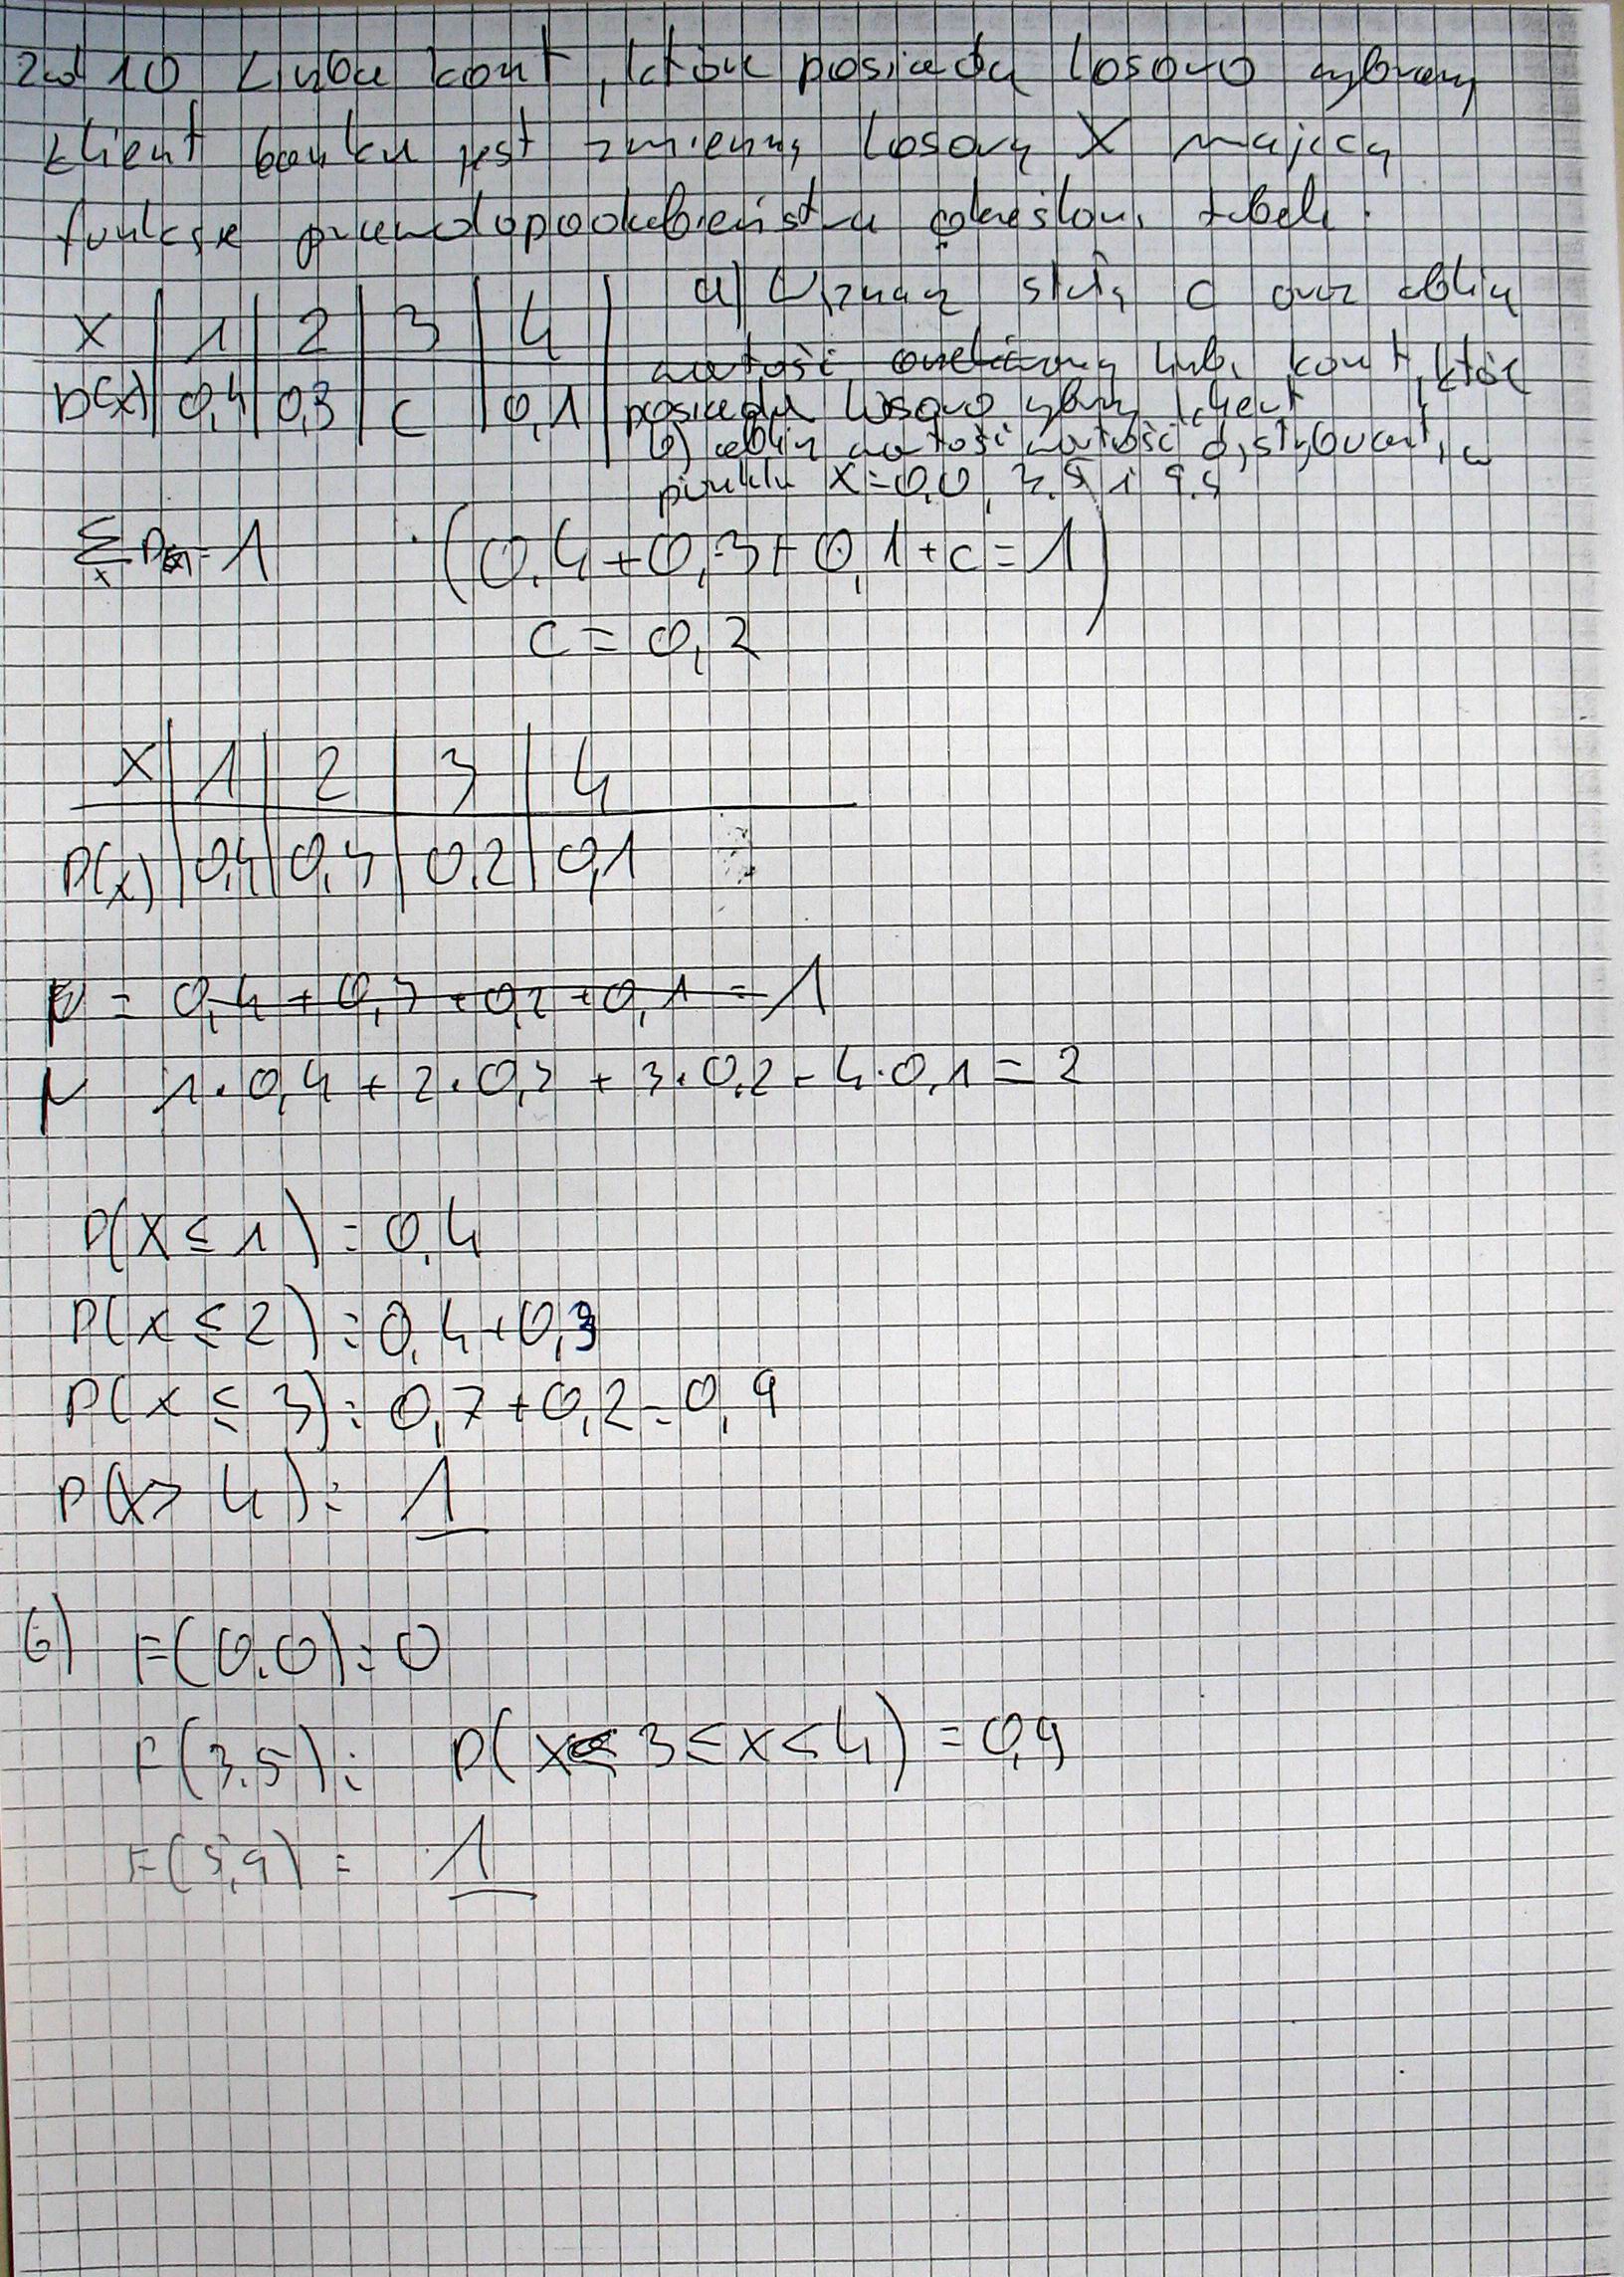 zad 10 Liczba kont, które posiada losowo wybrany
klient banku jest zmienną losową X mającą
funkcje prawdopodobieństwa określoną tabelą.
a) Wyznacz stałą c oraz oblicz
wartość oczekiwaną liczb. kont, które
posiada losowo wybrany klient
b) oblicz wartość dystrybuanty w
punktu x=0,0, 3.5 i
X | 1 | 2 | 3 | 4
p(x) | 0,4 | 0,3 | c | 0,1
∑ p(x) = 1 (0,4+0,3+0,1+c=1)
c = 0,2
X | 1 | 2 | 3 | 4
P(x) | 0,4 | 0,3 | 0,2 | 0,1
= 0,4 + 0,3 + 0,2 + 0,1 = 1
μ 1·0,4 + 2·0,3 + 3·0,2 + 4·0,1 = 2
P(X ≤ 1) = 0,4
P(x ≤ 2) = 0,4+0,3
P(x ≤ 3) = 0,7+0,2=0,9
P(x > 4) = 1
b) F(0.0) = 0
F(3.5) = P(x 3 ≤ x < 4) = 0,9
F(5,9) = 1